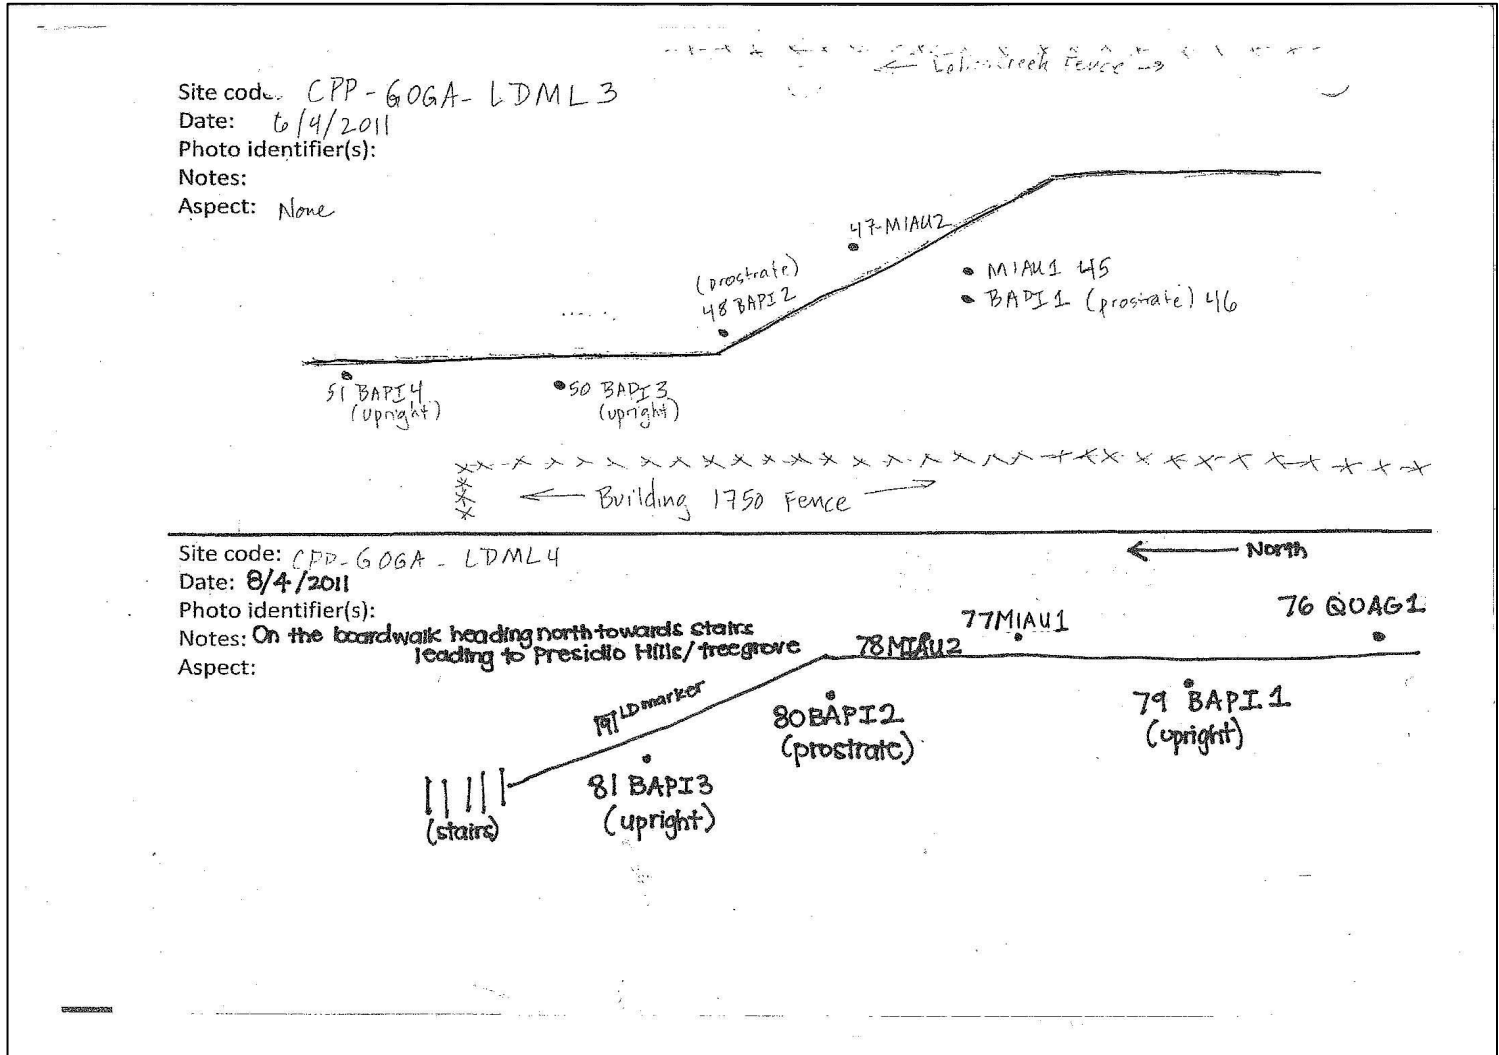 ← Lobos Creek Fence →
Site code: CPP-GOGA-LDML3
Date: 6/4/2011
Photo identifier(s):
Notes:
Aspect: None
47-MIAU2
(prostrate)
48 BAPI2
MIAU1 45
BAPI1 (prostrate) 46
51 BAPI4
(upright)
50 BAPI3
(upright)
← Building 1750 Fence →
Site code: CPP-GOGA-LDML4
← North
Date: 8/4/2011
Photo identifier(s):
Notes: On the boardwalk heading north towards stairs
leading to Presidio Hills/treegrove
Aspect:
76 QUAG1
77MIAU1
78MIAU2
LD marker
79 BAPI1
(upright)
80BAPI2
(prostrate)
81 BAPI3
(upright)
(stairs)